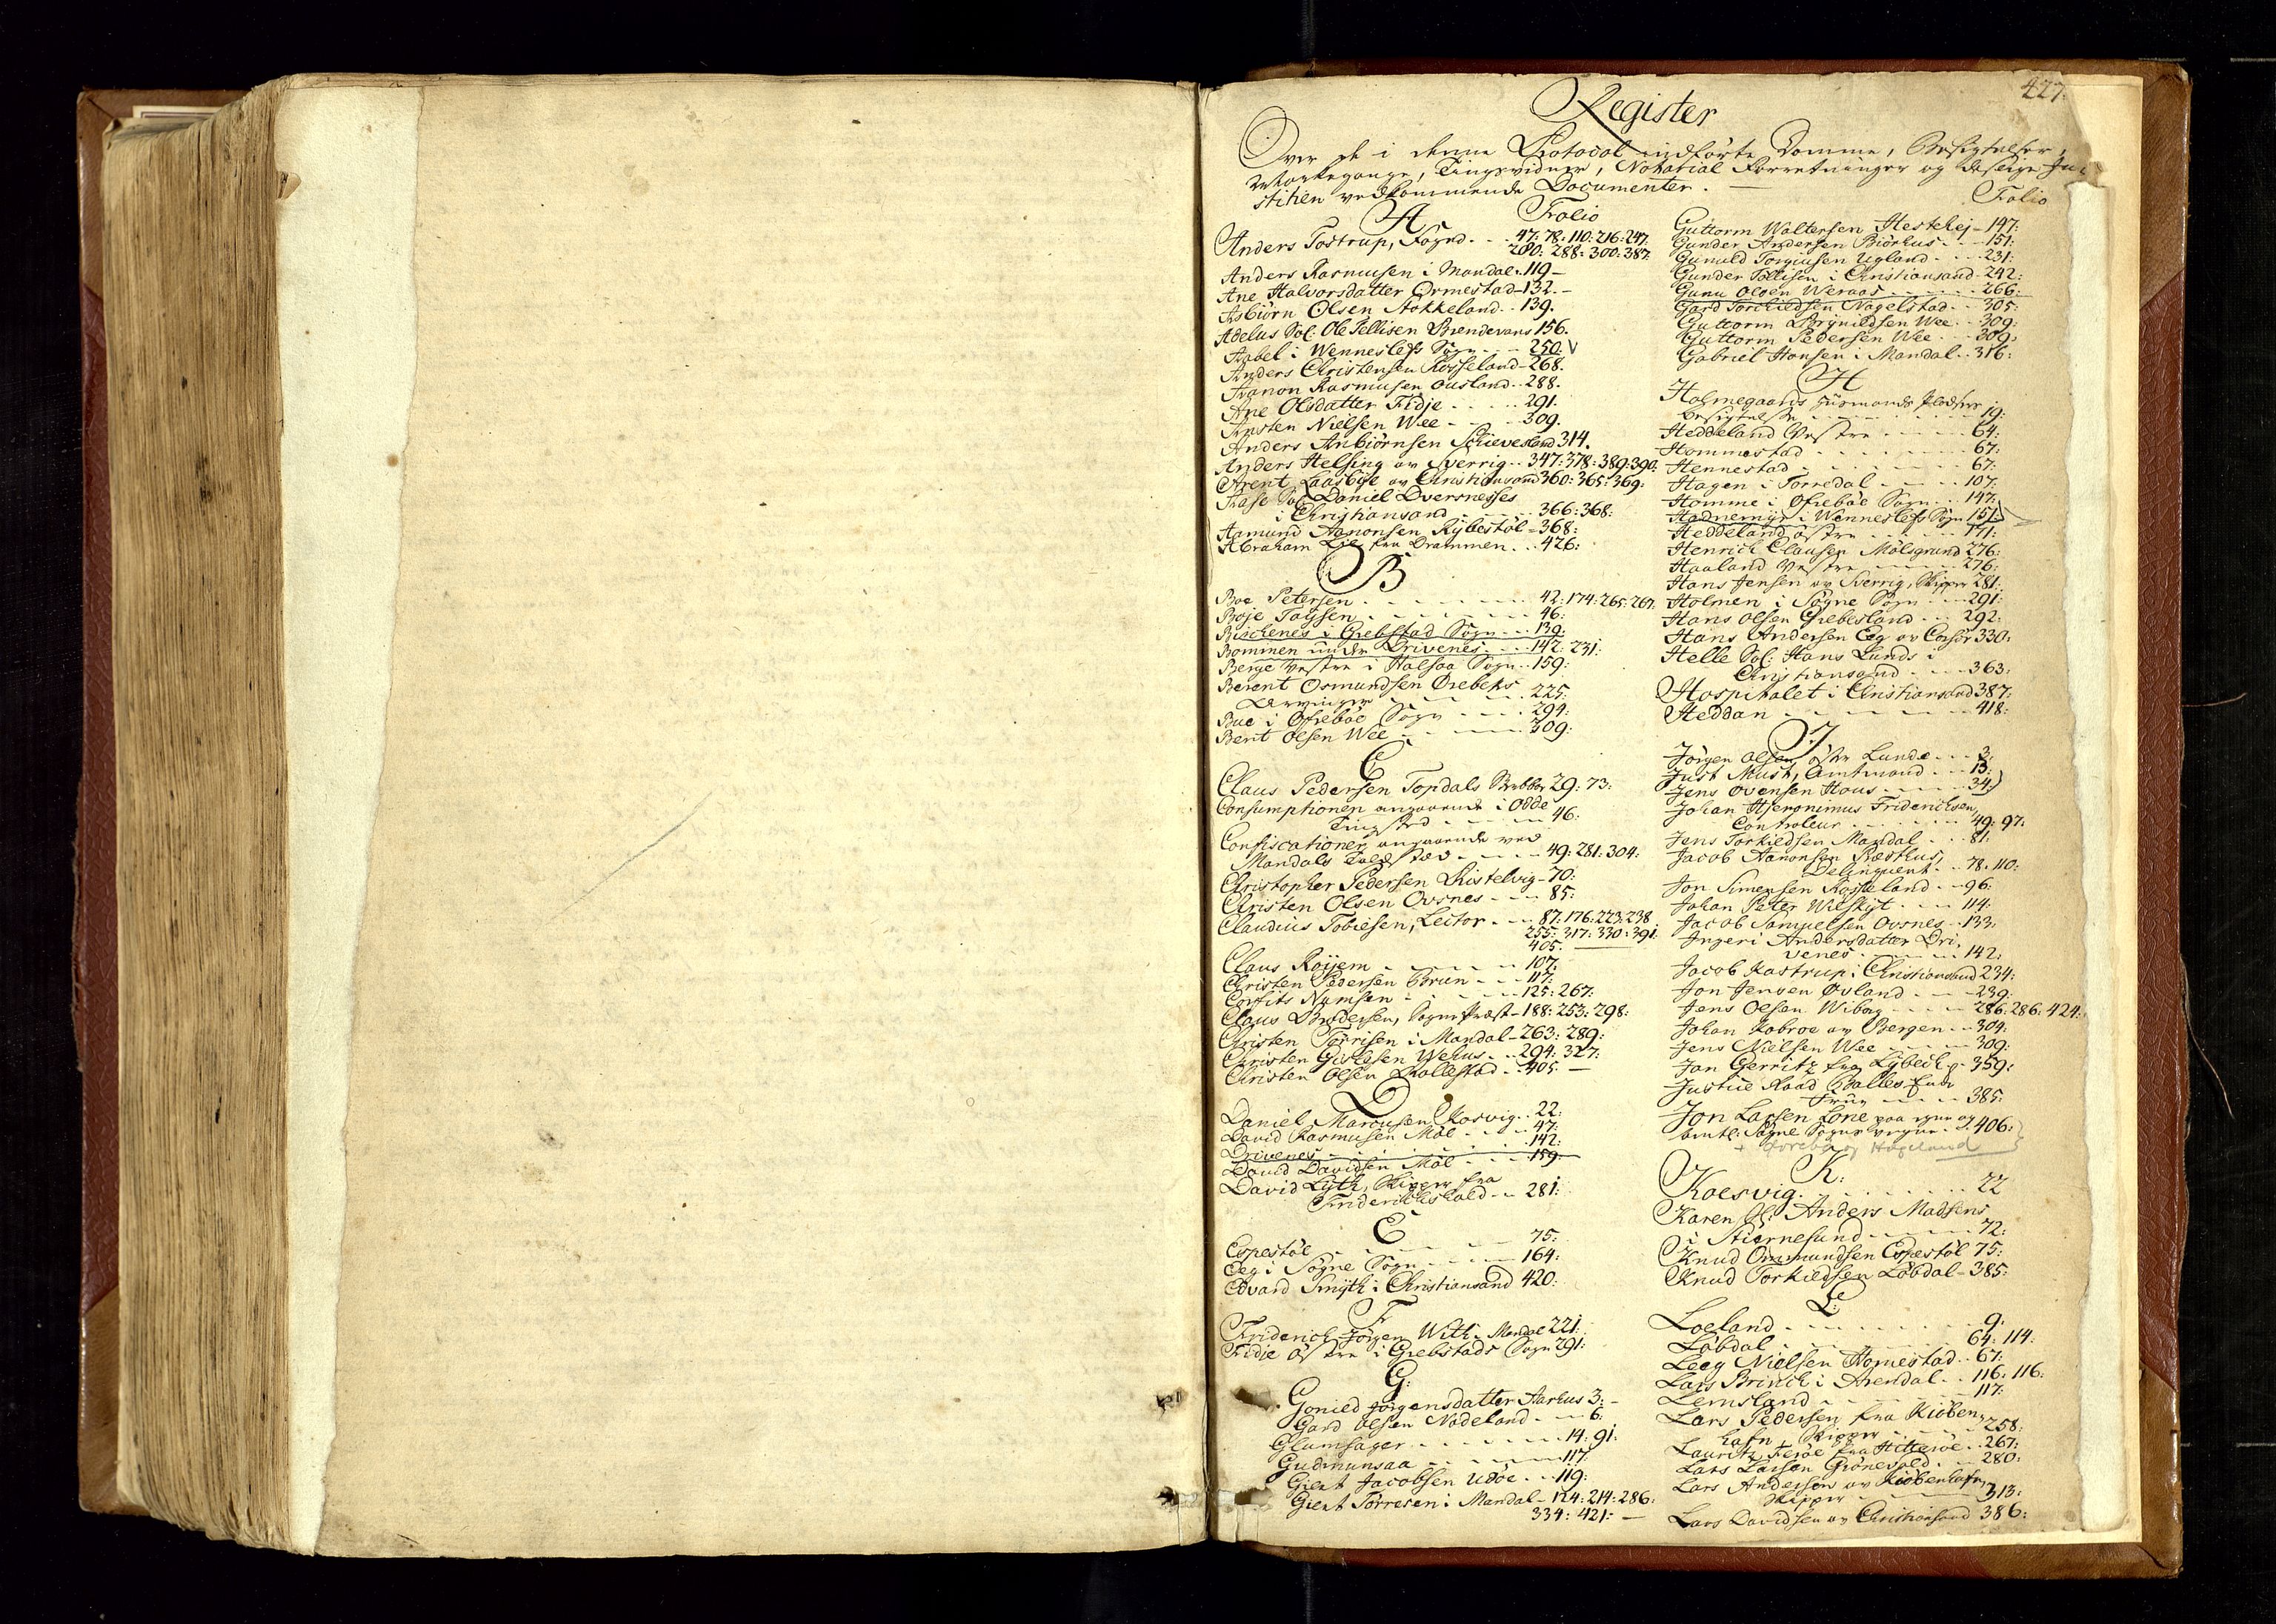 427.
Register
Over de i denne Protocol indførte Domme, Besigtelser,
Tingsvidner, Notarial Forretninger og deslige Ju-
stitien vedkommende Documenter.
A Folio
Anders Tostrup, Fogud - - 47: 78: 110: 216: 247:
280: 288: 300: 387:
Anders Rasmusen i Mandal. 119 -
Ane Halvorsdatter Ormestad - 132. -
Asbiørn Olsen Stokkeland - - 139.
Adelus Sal: Ole Tellisen Brendevans 156.
Aabel i Wenneslefs Sogn - - 250. V
Anders Christensen Rosseland - 268.
Aanon Rasmusen Ousland - - 288.
Ane Olsdatter Fidje - - - - 291.
Ansten Nielsen Wee - - - 309.
Anders Anbiørnsen Schievesland 314.
Anders Helsing av Sverrig - - 347: 378: 389: 390.
Arent Laasbye av Christiansand 360: 365: 369:
Aase Sal: Daniel Oversnesses
i Christiansand - - - - 366: 368:
Aamund Aanonsen Rybestøl - 368:
Abraham Lie fra Drammen - - 426:
B
Boe Petersen - - - - - 42: 174: 265: 267:
Boje Taysen - - - - - 46:
Bischenes i Grebstad Sogn - - 139.
Bommen under Drivenes - - 142: 231:
Berge Vestre i Halsaa Sogn - - 159:
Berent Osmundsen Ørebeks
- - - - - 225:
Bue i Øfrebøe Sogn - - - - 294:
Bent Olsen Wee - - - - 309:
C
Claus Pedersen Topdals 29: 73:
Consumptionen angaaende i Odde
Tingsted - - - - - 46:
Confiscationer angaaende ved
Mandals Toldsted - - - - 49: 281: 304:
Christopher Pedersen Skistelvig - 70:
Christen Olsen Ovsnes - - - 85:
Claudius Tobiesen, Lector - - - 87: 176: 223: 238
255: 317: 330: 391:
405.
Claus Røyem - - - - - 107:
Christen Pedersen Brun - - - 117:
Corfits Nymsen - - - - - 125: 267:
Claus Brodersen, Sogne Præst - 188: 253: 298:
Christen Tørrisen i Mandal - 263: 289:
Christen Gieldsen Wehus - - 294: 327:
Christen Olsen Drallestad - - 405 -
D
Daniel Marcusen Kosvig - - 22:
David Rasmusen Møl - - - 47:
Drivenes - - - - - 142:
David Davidsen Møl - - - 159:
David Lyth, Skipper fra
Friderichshald - - 281:
E
Espestøl - - - - - 75:
Eeg i Søgne Sogn - - - - 164:
Edvard Smyth i Christiansand 420:
F
Friderich Jørgen With i Mandal 221:
Fidje østre i Grebstads Sogn 291:
G:
Gonild Jørgensdatter Aarhus 3: -
Gard Olsen Nodeland - - - 6:
Glumsager - - - - - 14: 91:
Gudmunsaa - - - - - 117:
Giert Jacobsen Udøe - - - 119:
Giert Tørresen i Mandal - 124: 214: 286:
334: 421: -
Folio
Guttorm Woltersen Hestehej - 147:
Gunder Andersen Biørhus - - - 151:
Gunuld Torgiusen Ugland - - - 231:
Gunder Tollisen i Christiansand - 242:
Gunu Olsen Weraas - - - - 266:
Gard Torkieldsen Nagelstad - - 305:
Guttorm Brynildsen Wee - - 309:
Guttorm Pedersen Wee - - 309:
Gabriel Hansen i Mandal - - 316:
H
Holmegaards Huusmands Pladser
besigtelse - - - - - 19:
Heddeland Vestre - - - - 64:
Hommestad - - - - - 67:
Hennestad - - - - - 67:
Hagen i Torredal - - - - 107:
Homme i Øfrebøe Sogn - - 147:
Hadnemyr i Wenneslefs Sogn 151:
Heddeland østre - - - - 171:
Henrich Clausen Mølsgrund 276:
Haaland Vestre - - - - 276:
Hans Jensen av Sverrig, Skipper 281:
Holmen i Søgne Sogn - - - 291:
Hans Olsen Grebesland - - 292:
Hans Andersen Eeg av Corsør 330:
Helle Sal: Hans Lunds i
Christiansand - - - 363:
Hospitalet i Christiansand 387:
Heddan - - - - - 418:
J
Jørgen Olsen østre Lunde - - - 3:
Just Must, Amtmand - - 13:
Jens Ovensen Hous - - - 34:)
Johan Hjeronimus Friderichsen,
Controleur - - - - 49: 97:
Jens Torkildsen Mandal - - - 81:
Jacob Aanonsen Røsthus,
Delinquent - - 78. 110:
Jon Simensen Rosseland - - 96:
Johan Peter Wilskyt - - - 114:
Jacob Samuelsen Ovsnes - - 133:
Ingeri Andersdatter Dri-
venes - - - - - 142:
Jacob Kastrup i Christiansand 234:
Jon Jensen Øvland - - - 239:
Jens Olsen Wiborg - - - 286: 286: 424:
Johan Kobroe av Bergen - - 304:
Jens Nielsen Wee - - - 309:
Jan Gerritz fra Lybech - 359:
Justice Raad Balles
Frue - - - - 385:
Jon Larsen Lone paa egne og
Søgne Sogns vegne - 406:
Høyeland
K:
Koesvig. - - - - - 22
Karen Sal: Anders Madsens
i Stiernesund - - - - 72:
Knud Ommundsen Espestøl 75:
Knud Torkieldsen Løbdal - 385:
L:
Loeland - - - - - 9:
Løbdal - - - - - 64: 114:
Leeg Nielsen Homestad - - 67:
Lars Brinch i Arendal - - 116: 116:
Lemsland - - - - - 117:
Lars Pedersen fra Kiøben-
hafn, Skipper - - - - 258:
Lauritz Feiøe fra Hitterøe - - 267:
Lars Larsen Grønevold - - 280:
Lars Andersen av Kiøbenhafn,
Skipper - - - - 313:
Lars Davidsen av Christiansand 386: